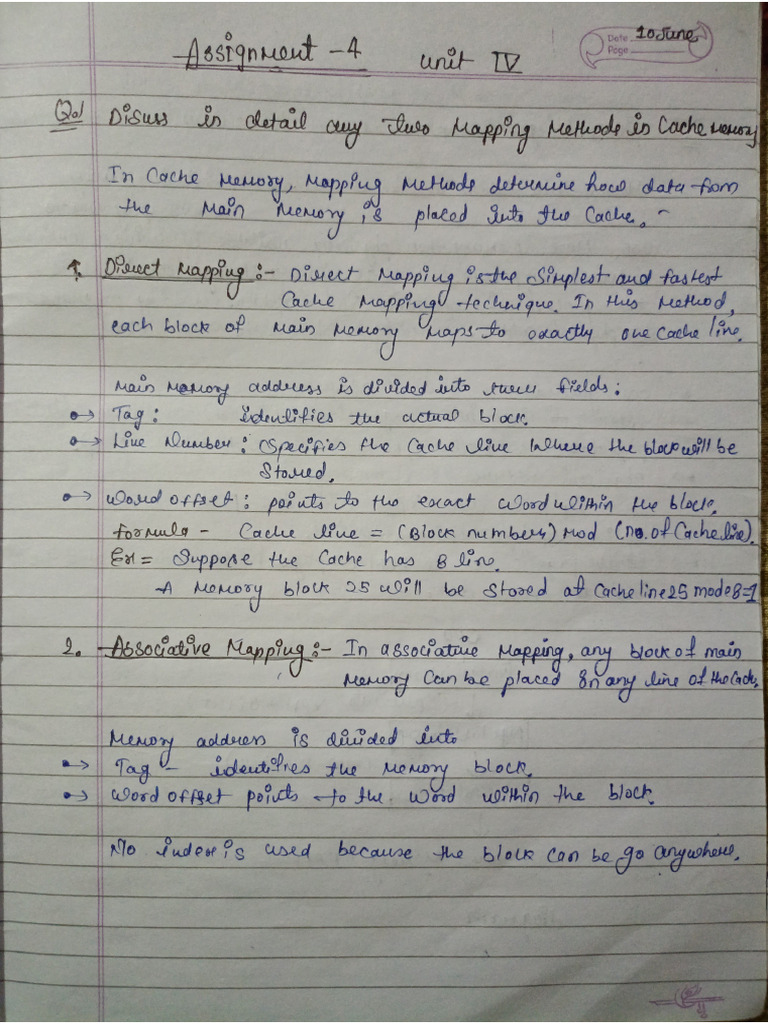 Assignment - 4 unit IV
Date 10 June
Page
Q.1 Disuss in detail any Two Mapping Methods in Cache memory
In Cache memory, Mapping methods determine how data from
the Main Memory is placed into the Cache.
1. Direct Mapping :- Direct Mapping is the Simplest and fastest
Cache Mapping technique. In this method,
each block of main memory maps to exactly one cache line.
Main memory address is divided into three fields:
Tag: identifies the actual block.
Line Number: Specifies the cache line where the block will be
Stored.
Word offset: points to the exact word within the block.
formula - Cache line = (Block numbers) Mod (no. of Cache line).
Ex = Suppose the Cache has 8 line.
A Memory block 25 will be stored at Cache line 25 mode 8=1
2. Associative Mapping :- In associative Mapping, any block of main
memory can be placed in any line of the cache.
Memory address is divided into
Tag - identifies the memory block.
Word offset points to the word within the block.
No index is used because the block can be go anywhere.